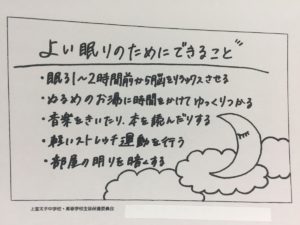 よい眠りのためにできること
・眠る1〜2時間前から脳をリラックスさせる
・ぬるめのお湯に時間をかけてゆっくりつかる
・音楽をきいたり、本を読んだりする
・軽いストレッチ運動を行う
・部屋の明りを暗くする